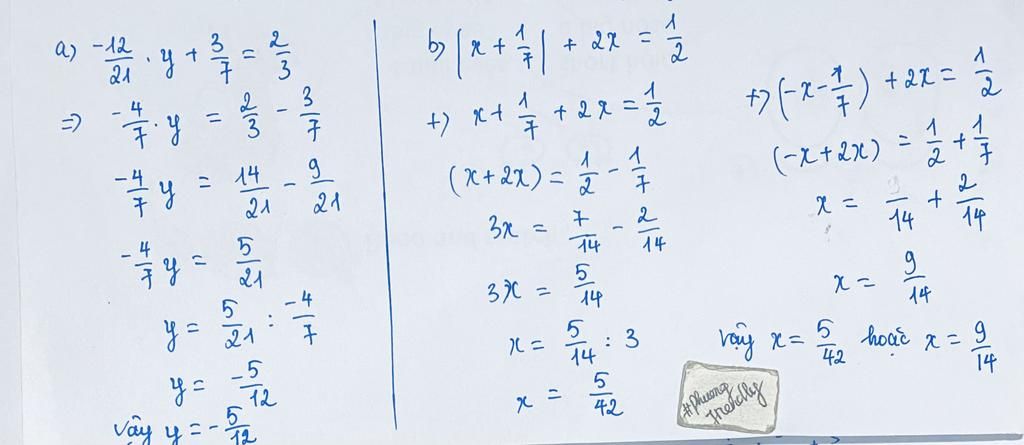 a) -12/21 . y + 3/7 = 2/3
=> -4/7 . y = 2/3 - 3/7
-4/7 y = 14/21 - 9/21
-4/7 y = 5/21
y = 5/21 : -4/7
y = -5/12
vậy y = -5/12
b) |x + 1/7| + 2x = 1/2
+) x + 1/7 + 2x = 1/2
(x + 2x) = 1/2 - 1/7
3x = 7/14 - 2/14
3x = 5/14
x = 5/14 : 3
x = 5/42
+) (-x - 1/7) + 2x = 1/2
(-x + 2x) = 1/2 + 1/7
x = /14 + 2/14
x = 9/14
vậy x = 5/42 hoặc x = 9/14
#phuong
friendlly